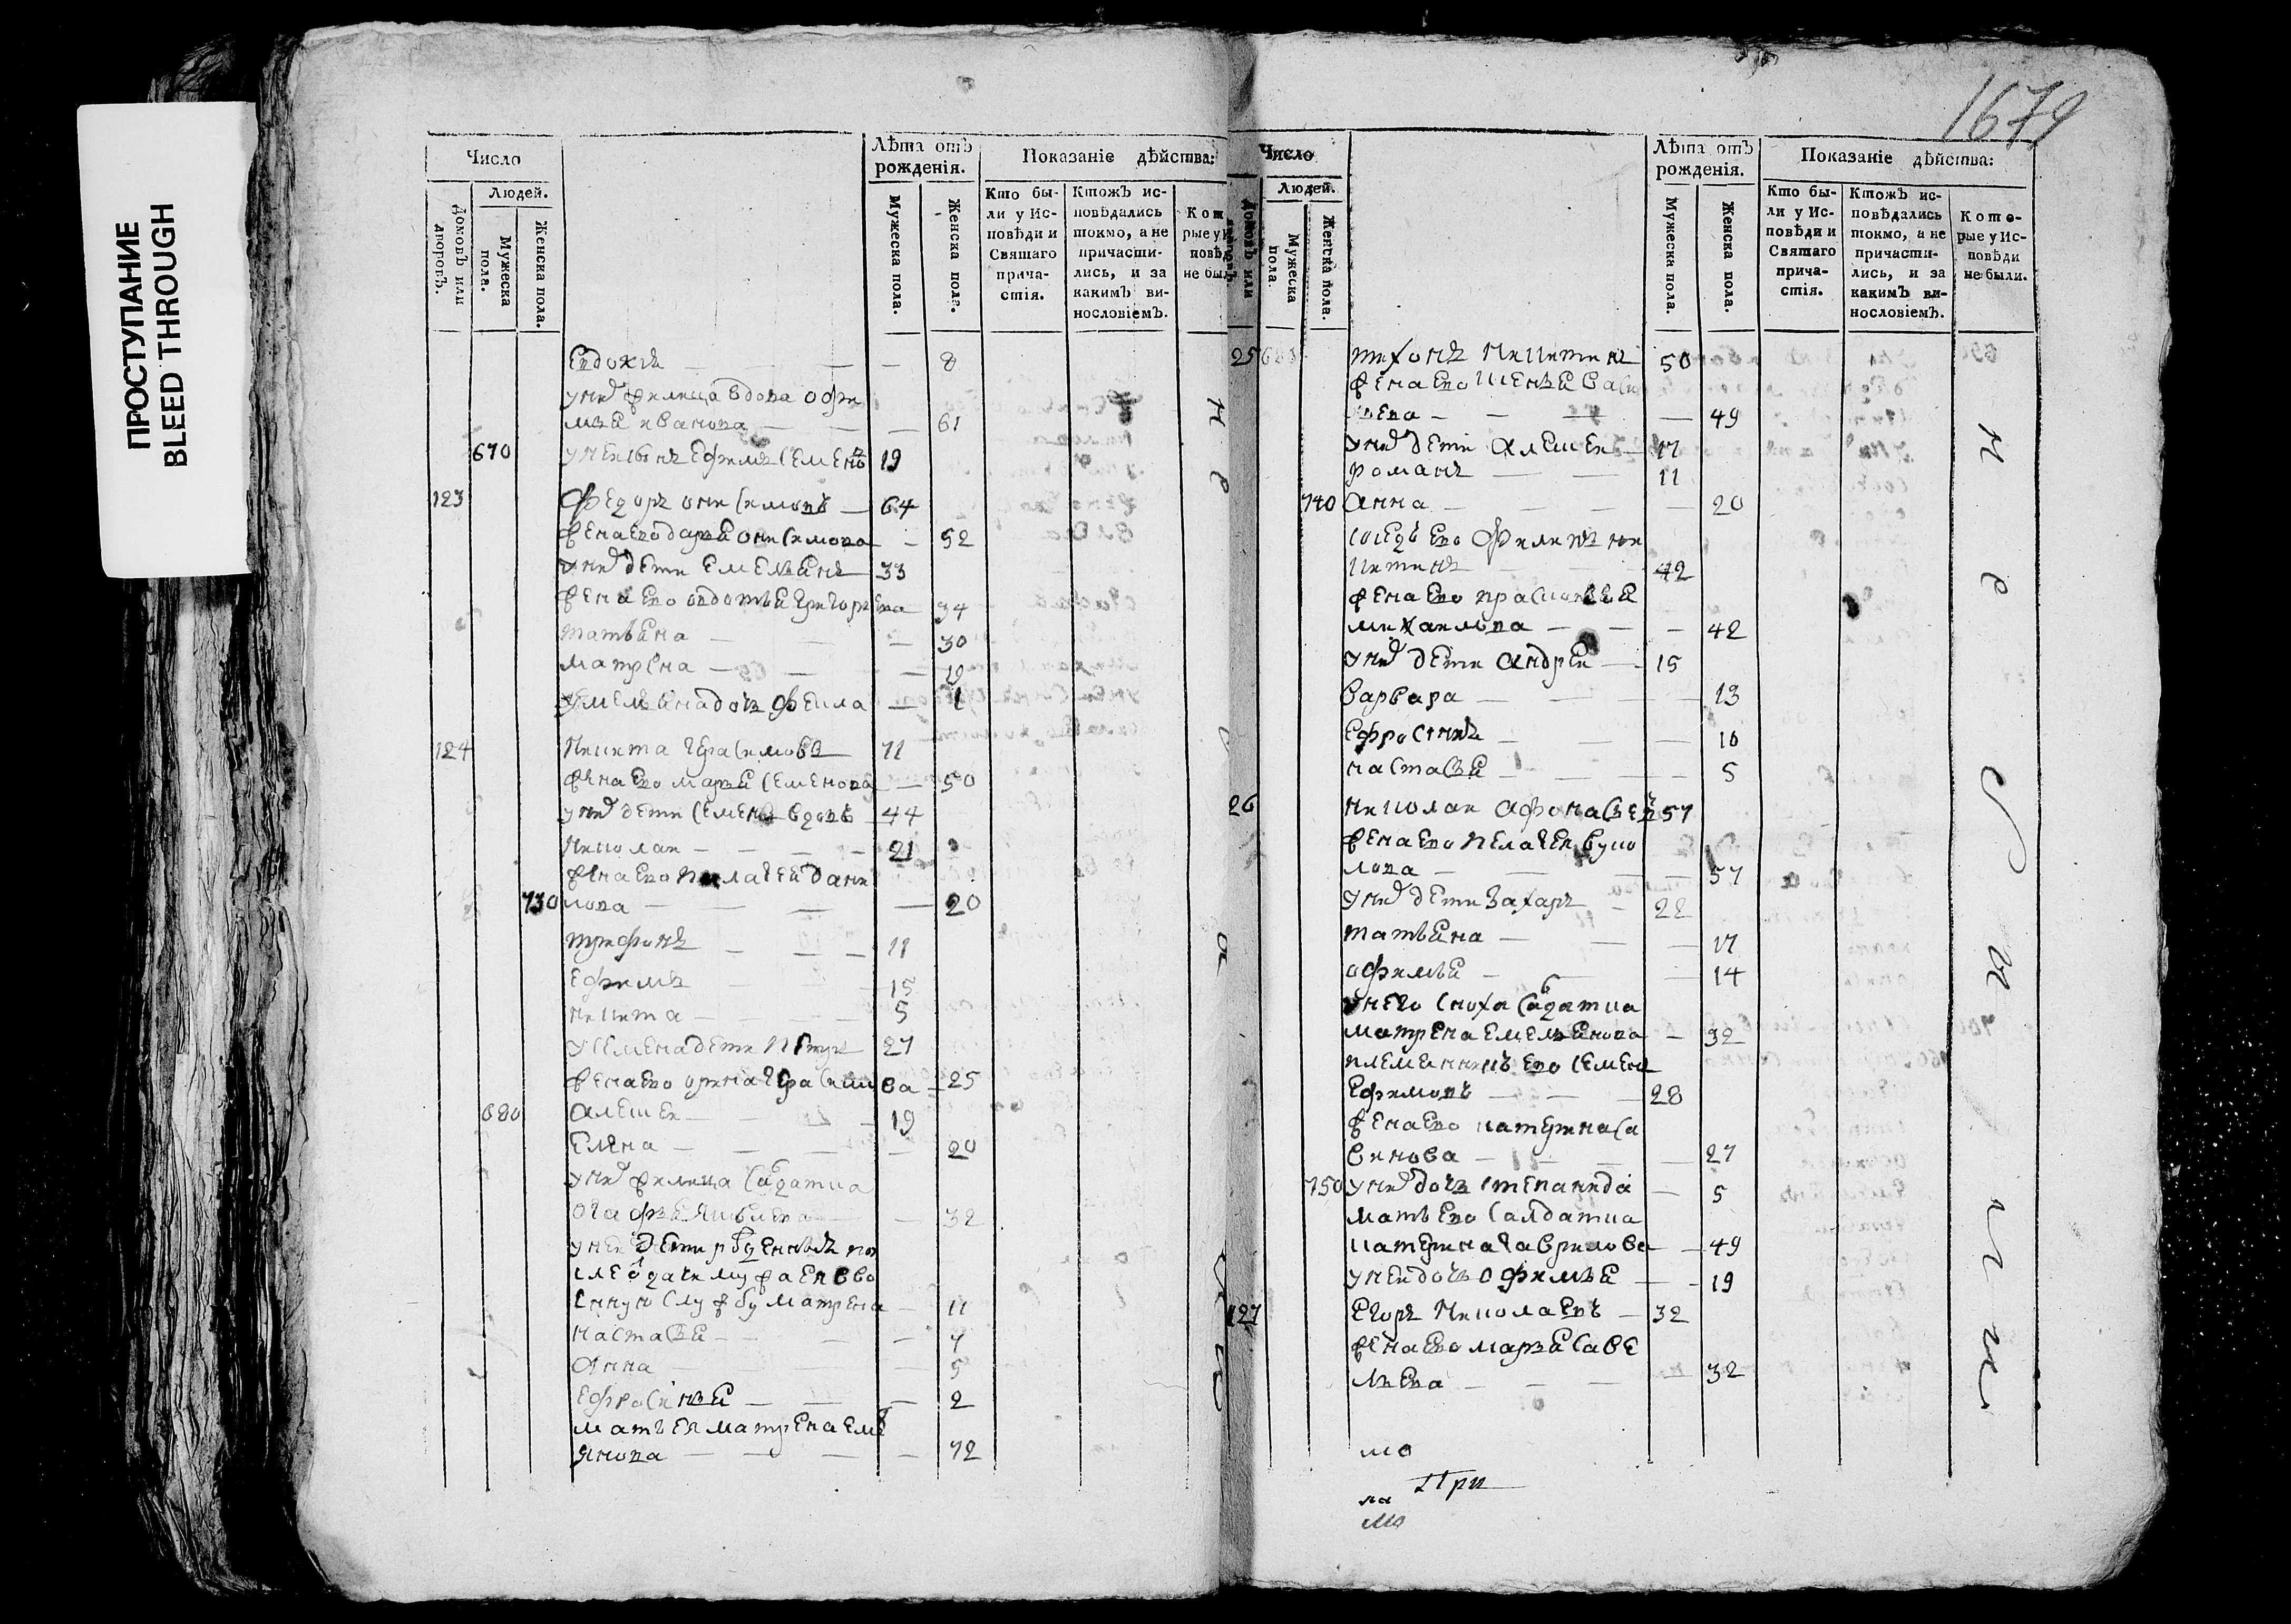 ПРОСТУПАНИЕ
BLEED THROUGH
1679
Число
Лѣта отъ рожденія.
Показаніе дѣйства:
Людей.
Домовъ или дворовъ.
Мужеска пола.
Женска пола.
Мужеска пола.
Женска пола.
Кто были у Исповѣди и Святаго причастія.
Ктожъ исповѣдались токмо, а не причастились, и за какимъ винословіемъ.
Евдокия 8
у них жилица вдова офи
мья иванова 61
670 у неи сынъ Ефимъ Семенъ 19
123 Федоръ онисимовъ 64
жена ево дарья онисимова 52
у них дети Емельянъ 33
жена ево овдотья григорьева 34
татьяна 30
матрена 19
у Емельяна дочь фекла 1
124 Никита герасимовъ 71
жена ево марья Семенова 50
у них дети Семенъ вдовъ 44
Николаи 21
жена ево пелагея дани
730 лова 20
трифонъ 11
Ефимъ 15
никита 5
у Семена дети Петръ 27
жена ево орина герасимова 25
680 алексеи 19
Елена 20
у них жилица салдатка
огафья Яковлева 32
у неи дети рожденные по
сле одачи мужа ея в во
енную службу матрена 11
настасья 7
Анна 5
Ефросинья 2
мать ея матрена Емел
янова 72
Число
Лѣта отъ рожденія.
Показаніе дѣйства:
Людей.
Мужеска пола.
Женска пола.
Мужеска пола.
Женска пола.
Кто были у Исповѣди и Святаго причастія.
Ктожъ исповѣдались токмо, а не причастились, и за какимъ винословіемъ.
Которые у Исповѣди не были.
25 тихонъ Никитинъ 50
49
у них дети Алексеи 17
романъ 11
740 Анна 20
соседъ ево Филипъ ни
китинъ 42
жена ево прасковья
михаилова 42
у них дети Андреи 15
варвара 13
Ефросинья 10
настасья 5
26 Николаи Афонасьевъ 57
жена ево пелагея вуко
лова 57
у них дети Захаръ 22
татьяна 17
офимья 14
у него сноха салдатка
матрена Емельянова 32
племянникъ ево Семенъ
Ефимовъ 28
жена ево катерина са
винова 27
750 у них дочь степанида 5
мать ево салдатка
катерина гаврилова 49
у неи дочь офимья 19
127 Егоръ Николаевъ 32
жена ево марья саве
льева 32
мо
При
ла
мо